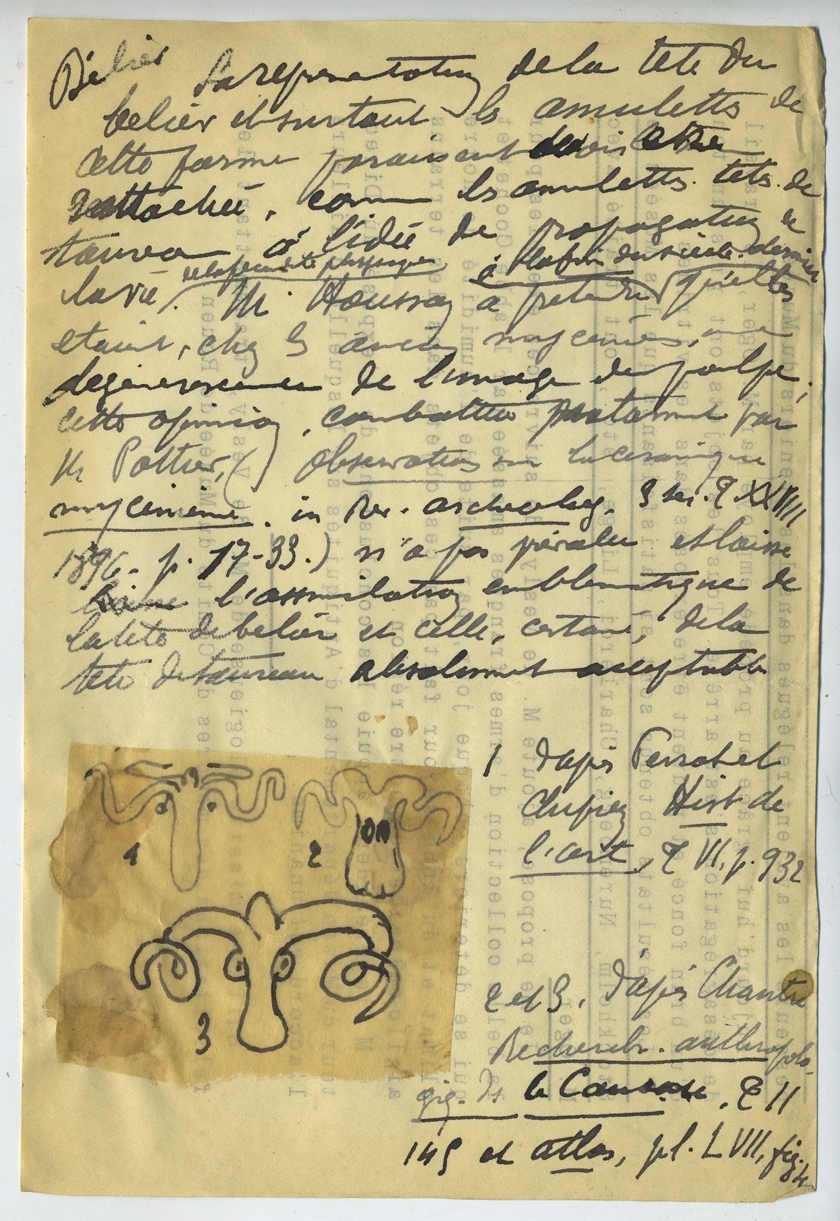 Bélier La representation de la tete du
belier et surtout les amulettes de
cette forme paraissent devoir etre
rattachée, comme les amulettes tete de
taureau à l'idée de propagation de
la vie. à la fin du siècle dernier
M. Houssay a pretendu qu'elles
etaient, chez les anciens myceniens, une
degenerescence de l'image du poulpe,
cette opinion, combattue notamment par
M Pottier, ( Observations sur la ceramique
mycenienne. in Rev. archeolog. 3 ser. T XXVIII
1896 - p. 17-33.) n'a pas prevalu et laisse
l'assimilation emblematique de
la tete de belier et celle, certaine, de la
tete de taureau absolument acceptable
1 2 3
1 d'après Perrot et
Chipiez Hist de
l'art, T VI, p. 932
2 et 3. d'après Chantre
Recherch. anthropolo
giq. ds le Caucase, T II
145 et atlas, pl. LVII, fig. 4